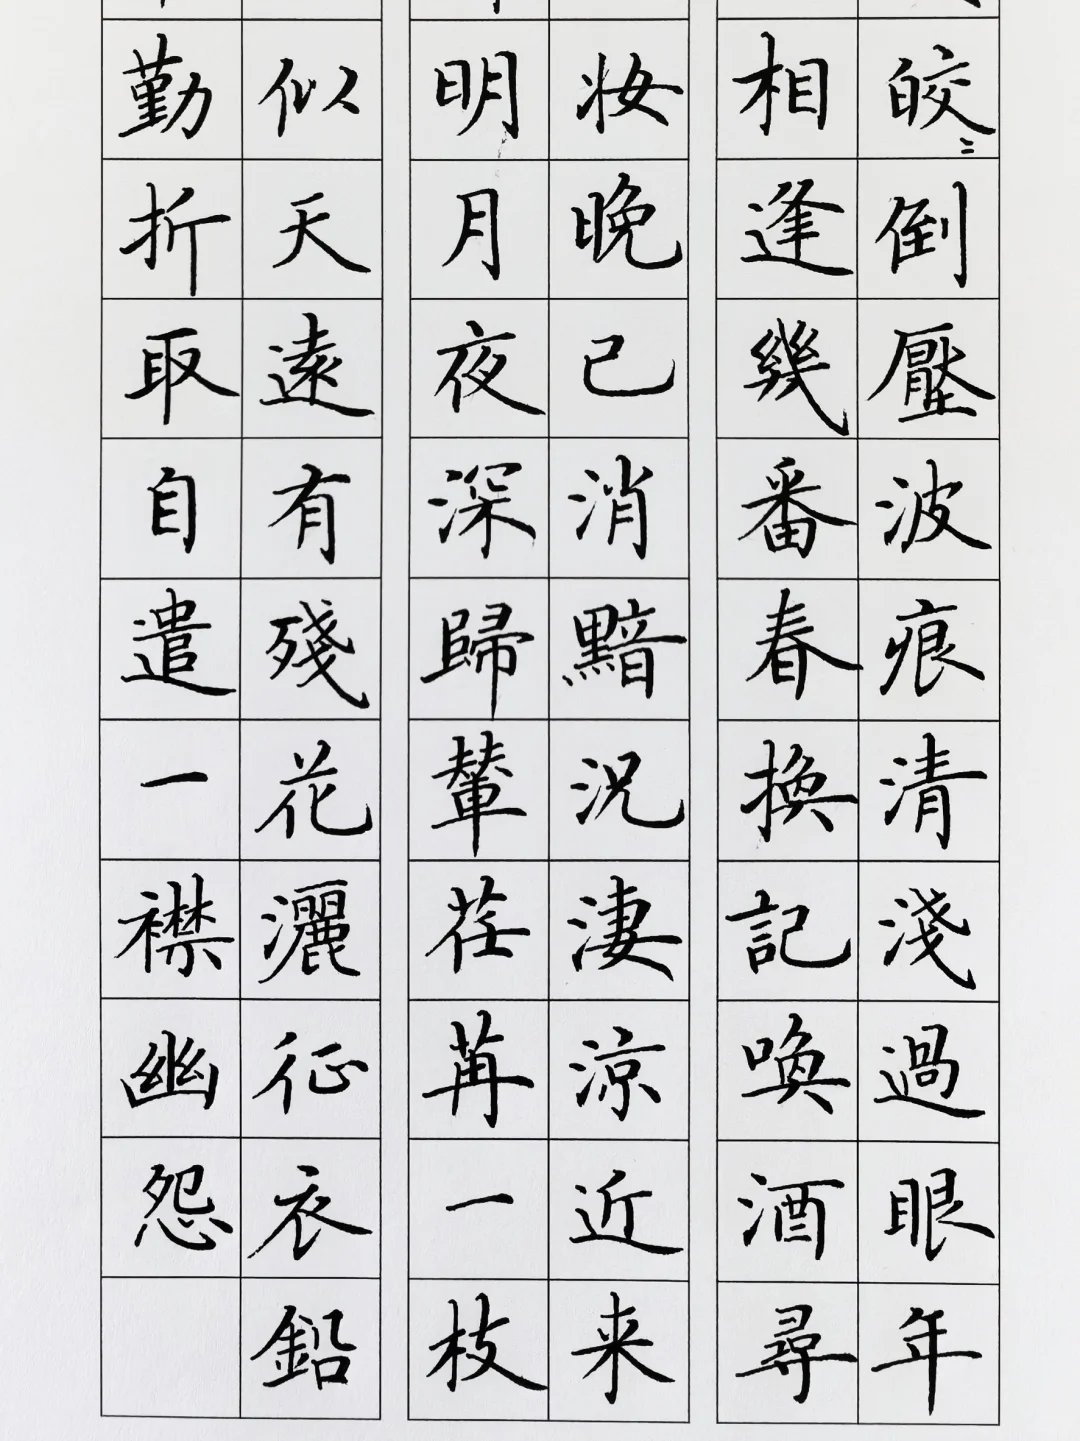 皎〻倒壓波痕清淺過眼年
相逢幾番春換記喚酒尋
妝晚已消黯況淒涼近来
明月夜深歸輦荏苒一枝
似天遠有殘花灑征衣鉛
勤折取自遣一襟幽怨